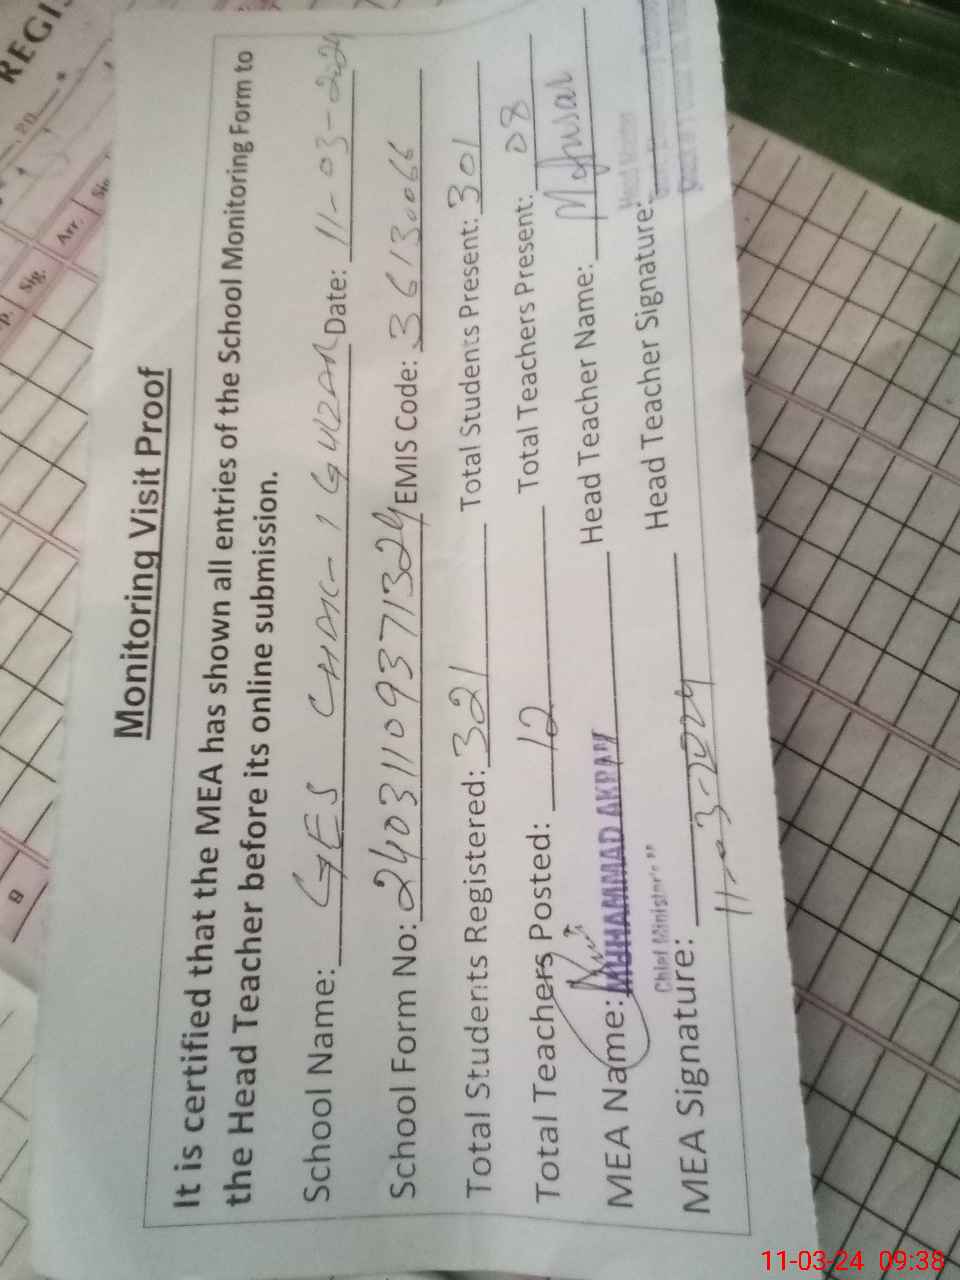 Monitoring Visit Proof
It is certified that the MEA has shown all entries of the School Monitoring Form to
the Head Teacher before its online submission.
School Name: GES CHAK-1 GULZAR Date: 11-03-2024
School Form No: 24031109371324 EMIS Code: 36130066
Total Students Registered: 321 Total Students Present: 301
Total Teachers Posted: 12 Total Teachers Present: 08
MEA Name: MUHAMMAD AKRAM Head Teacher Name:
Chief Minister's
MEA Signature: Head Teacher Signature:
11-03-2024
Head Master
REGIS
20
Sig.
Arr.
Sig.
11-03-24 09:38